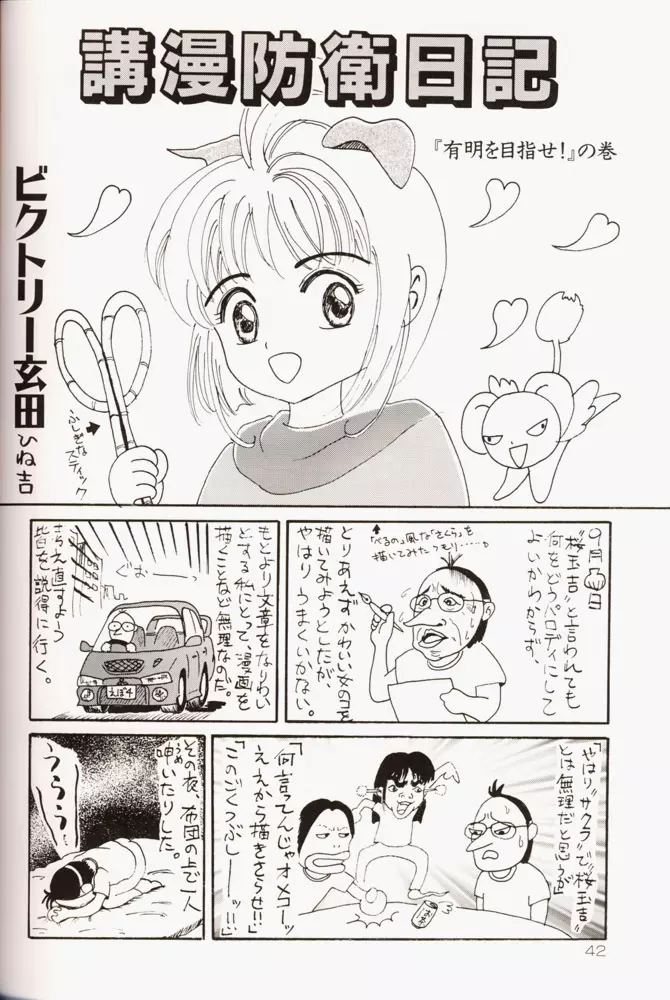 講漫防衛日記
『有明を目指せ!』の巻
ビクトリー玄田ひね吉
ふしぎな
スティック
9月
"桜玉吉"と言われても
何をどうパロディにして
よいかわからず、
「べるの」風な「さくら」を
描いてみたつもり……。
とりあえずかわいい女のコを
描いてみようとしたが、
やはりうまくいかない。
もとより文章をなりわい
とする私にとって、漫画を
描くことなど無理なのだ。
ぐおーーっ
えぼ4
考え直すよう
皆を説得に行く。
「やはり"サクラ"で"桜玉吉"
とは無理だと思うが」
「何言ってんじゃオメコーッ
ええから描きさらせ!!」
「このごくつぶしーーッ!!」
その夜、布団の上で一人
呻いたりした。
うめ
うううう…
42